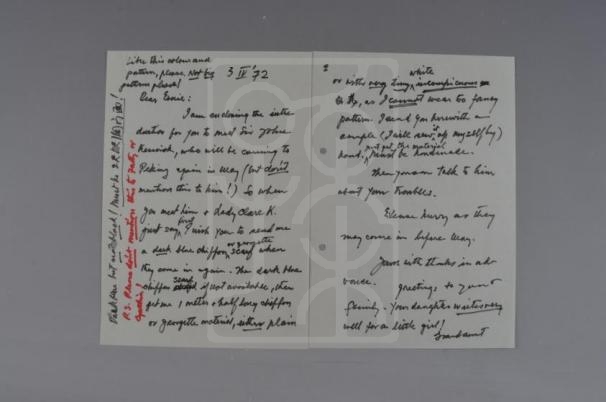 Like this colour and
pattern, please. Not big
pattern please!
3 IV '72
Dear Essie:
I am enclosing the intro
duction for you to meet Sir John
Keswick, who will be coming to
Peking again in May (but don't
mention this to him!) So when
you meet him & Lady Clare K.
just say, first, I wish you to send me
a dark blue chiffon, or georgette scarf when
they come in again. If dark blue
chiffon scarf is not available, then
get me 1 meter & half long chiffon
or georgette material, either plain
Dark blue but not black! Must be
P.S. Please don't mention this to Patty, or
2
or with very tiny, inconspicuous white
as I cannot wear too fancy
pattern. I send you herewith a
sample (I will sew it up myself by
hand. just get the material. Must be handmade.
Then you can talk to him
about your troubles.
Please hurry as they
may come in before May.
Yours with thanks in ad
vance.
Greetings to your
family. Your daughter writes very
well for a little girl!